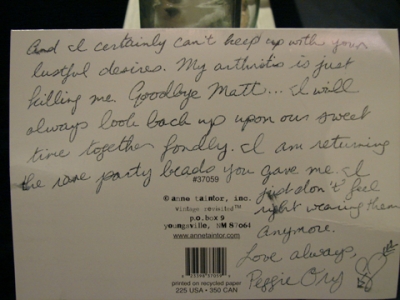 And I certainly can't keep up with your
lustful desires. My arthritis is just
killing me. Goodbye Matt... I will
always look back up upon our sweet
time together fondly. I am returning
the rare party beads you gave me. I
#37059
just don't feel
© anne taintor, inc.
right wearing them
vintage revisited™
anymore.
p.o.box 9
youngsville, NM 87064
www.annetaintor.com
Love always,
Peggie Ory
printed on recycled paper
225 USA • 350 CAN